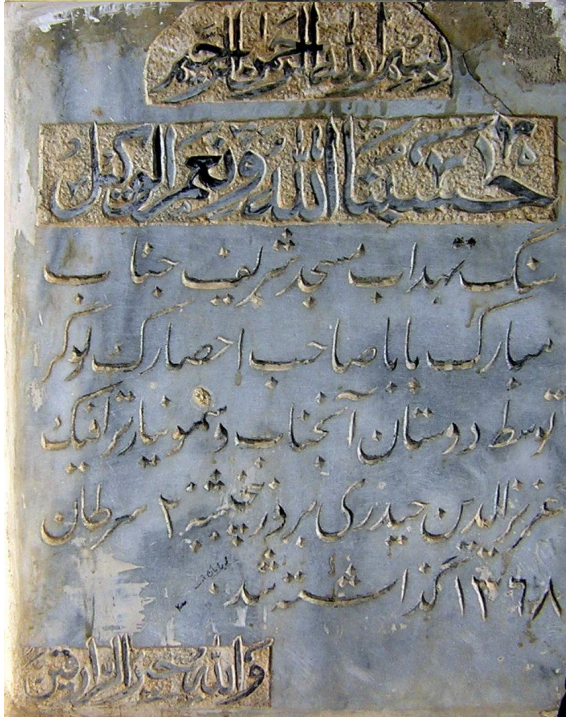 بسم الله الرحمن الرحیم
حسبنا الله و نعم الوکیل
سنگ تهداب مسجد شریف جناب
مبارک بابا صاحب احصارک لوگر
توسط دوستان آنجناب و سمونیار ترافیک
عزیز الدین حیدری بروز پنجشنبه ۲ سرطان
۱۳۶۸ گذاشته شد
والله خیر الرازقین